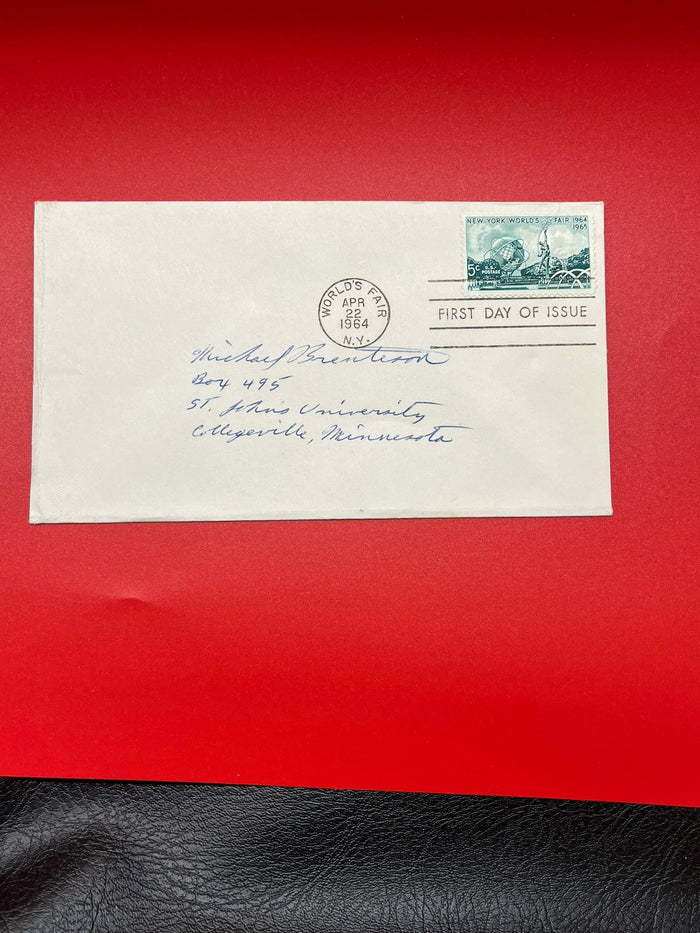 NEW YORK WORLD'S FAIR 1964
1965
5¢ U.S. POSTAGE
WORLD'S FAIR
APR
22
1964
N.Y.
FIRST DAY OF ISSUE
Michael Brenteson
Box 495
St. John's University
Collegeville, Minnesota